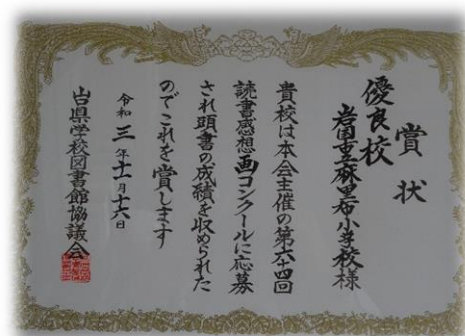 賞状
優良校
岩国市立麻里布小学校様
貴校は本会主催の第六十四回
読書感想画コンクールに応募
され頭書の成績を収められた
のでこれを賞します
令和三年十一月十六日
山口県学校図書館協議会